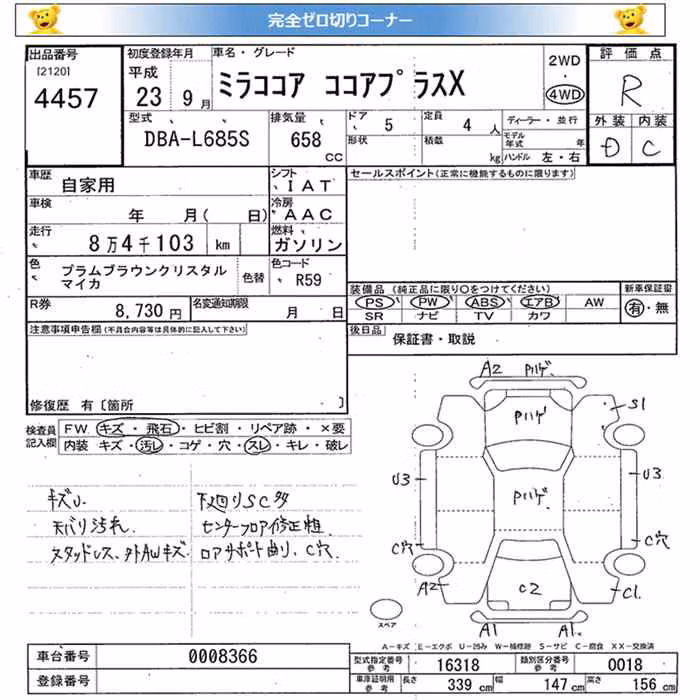 完全ゼロ切りコーナー
出品番号
[2120]
4457
初度登録年月
平成
23 9 月
車名・グレード
ミラココア ココアプラスX
2WD
・
4WD
評価点
R
外装 内装
D C
型式
DBA-L685S
排気量
658
cc
ドア
5
定員
4 人
ディーラー・並行
形状
積載
kg
モデル年式 年
ハンドル 左・右
車歴
自家用
シフト
IAT
セールスポイント(正常に機能するものに限ります)
車検
年 月( 日)
冷房
AAC
走行
8万4千103 km
燃料
ガソリン
色
プラムブラウンクリスタル
マイカ
色替
色コード
R59
R券
8,730 円
名変通知期限
月 日
装備品(純正品に限り○をつけてください)
PS PW ABS エアB AW
SR ナビ TV カワ
新車保証書
有・無
後日品
保証書・取説
注意事項申告欄(不具合内容等は具体的に記入して下さい)
修復歴 有〔箇所 〕
検査員
記入欄
FW. キズ・飛石・ヒビ割・リペア跡・×要
内装 キズ・汚れ・コゲ・穴・スレ・キレ・破レ
キズU.
天バリ汚れ.
スタッドレス、外AWキズ.
下廻りSC多
センターフロア修正粗.
ロアサポート曲り、C穴.
A2 Pハゲ.
Pハゲ
S1
U3
Pハゲ.
U3
C穴
C穴
A2
C2
C1.
A1
A1.
スペア
A-キズ E-エクボ U-凹み W-補修跡 S-サビ C-腐食 XX-交換済
車台番号
0008366
登録番号
型式指定番号
参考
16318
類別区分番号
参考
0018
車庫証明用
参考
長さ
339 cm
幅
147 cm
高さ
156 cm